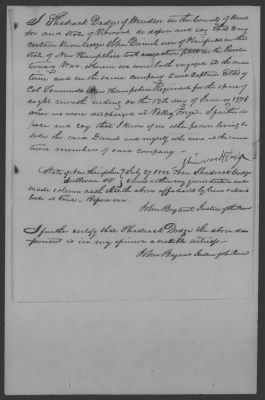 I Shadrack Dodge of Windsor in the County of Wind
sor and State of Vermont do depose and say that to my
certain knowledge John Dwinel now of Newport in the
State of New Hampshire
tionary War. whereas we were both engaged at the same
time and in the same company under Captain Ellis of
Col Scammels New Hampshire Regiment for the space of
eight months ending on the 10th day of January 1778
when we were discharged at Valley Forge. I further de
pose and say that I know of no other person living be
sides the said Dwinel and myself who were at the same
time members of said company
Shadrack Dodge
State of New Hampshire July 27 1832 Then Shadrack Dodge
Sullivan SS within my jurisdiction and
made solemn oath that the above affidavit by him subscri
bed is true. Before me
John Bryant Justice of the Peace
I further certify that Shadrack Dodge the above de
ponent is in my opinion a credible witness
John Bryant Justice of the Peace